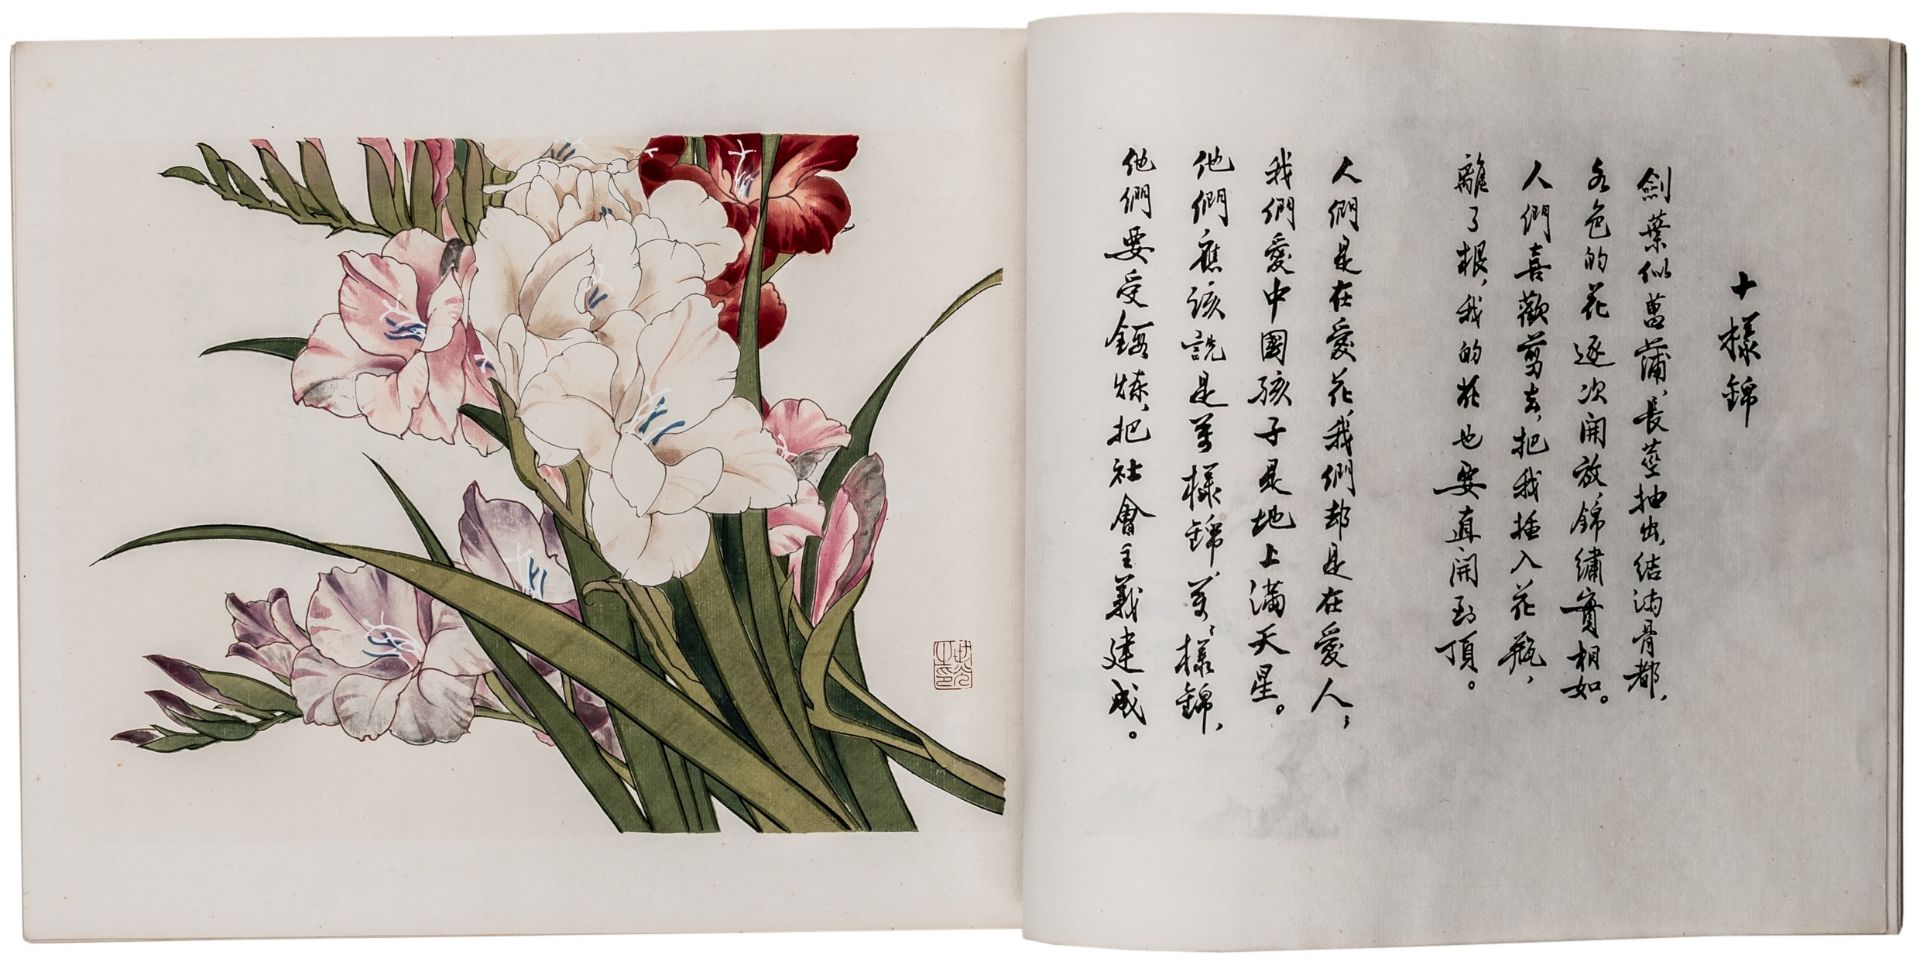 十樣錦
劍葉似菖蒲，長莖抽出，結滿骨都，
各色的花逐次開放，錦繡實相如。
人們喜歡剪去，把我插入花瓶，
離了根，我的花也要直開到頂。
人們是在愛花，我們却是在愛人；
我們愛中國孩子是地上滿天星。
他們應該說是萬樣錦，萬萬樣錦，
他們要受鍛煉，把社會主義建成。